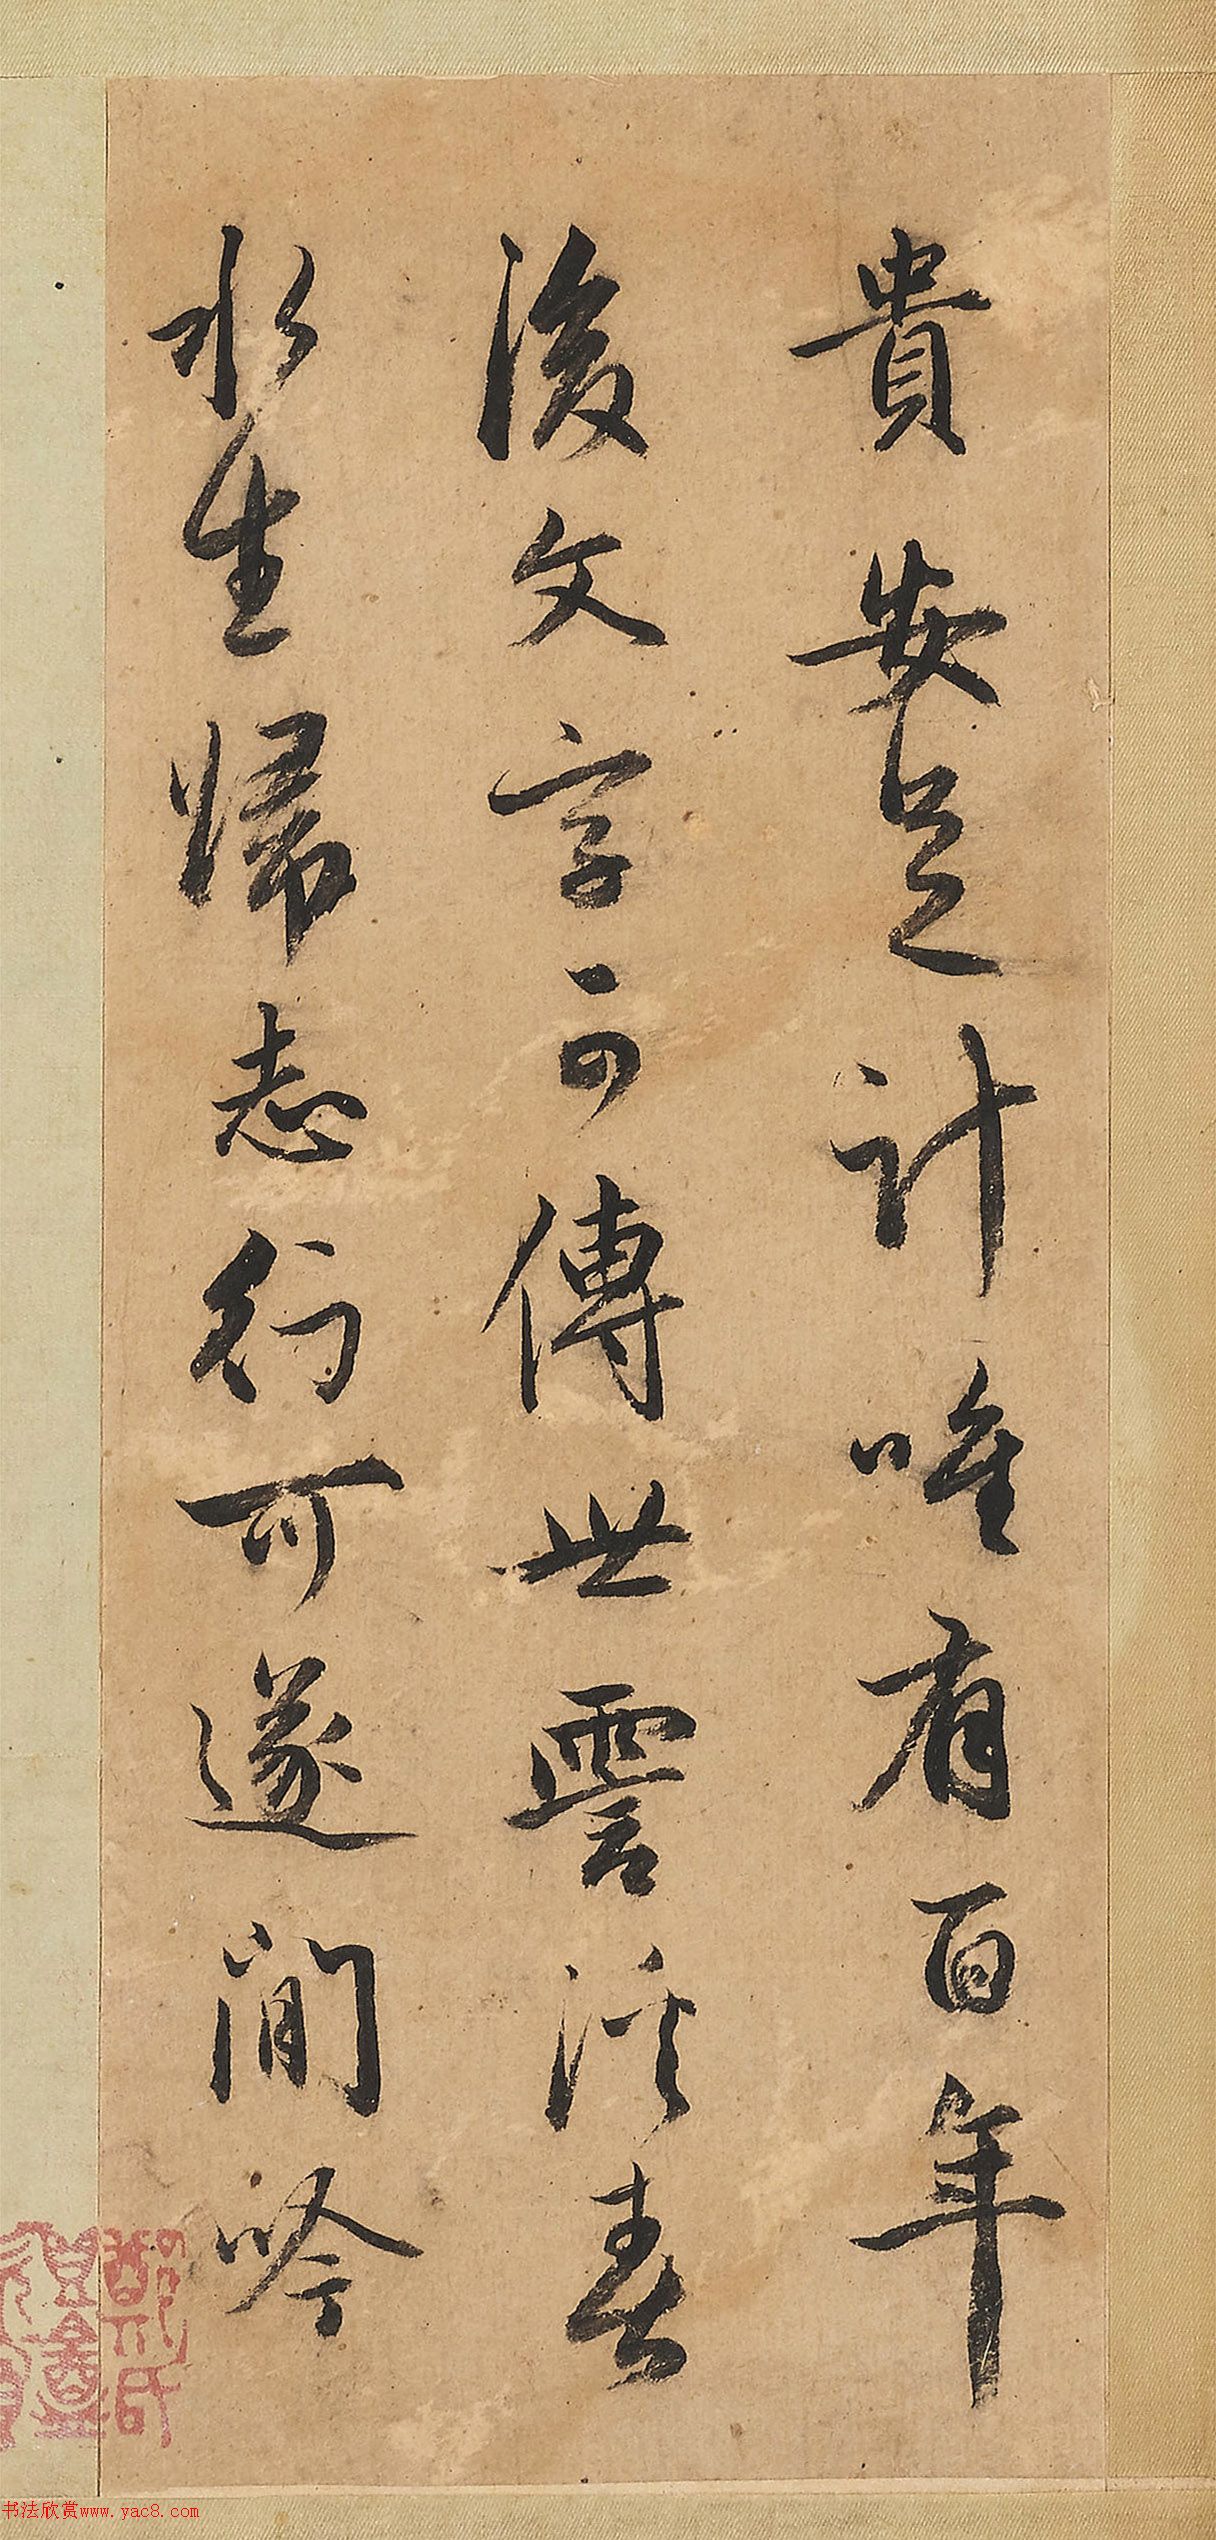 貴安足計唯有百年
後文字可傳世雲溪春
水生歸志行可遂閒吟
书法欣赏www.yac8.com